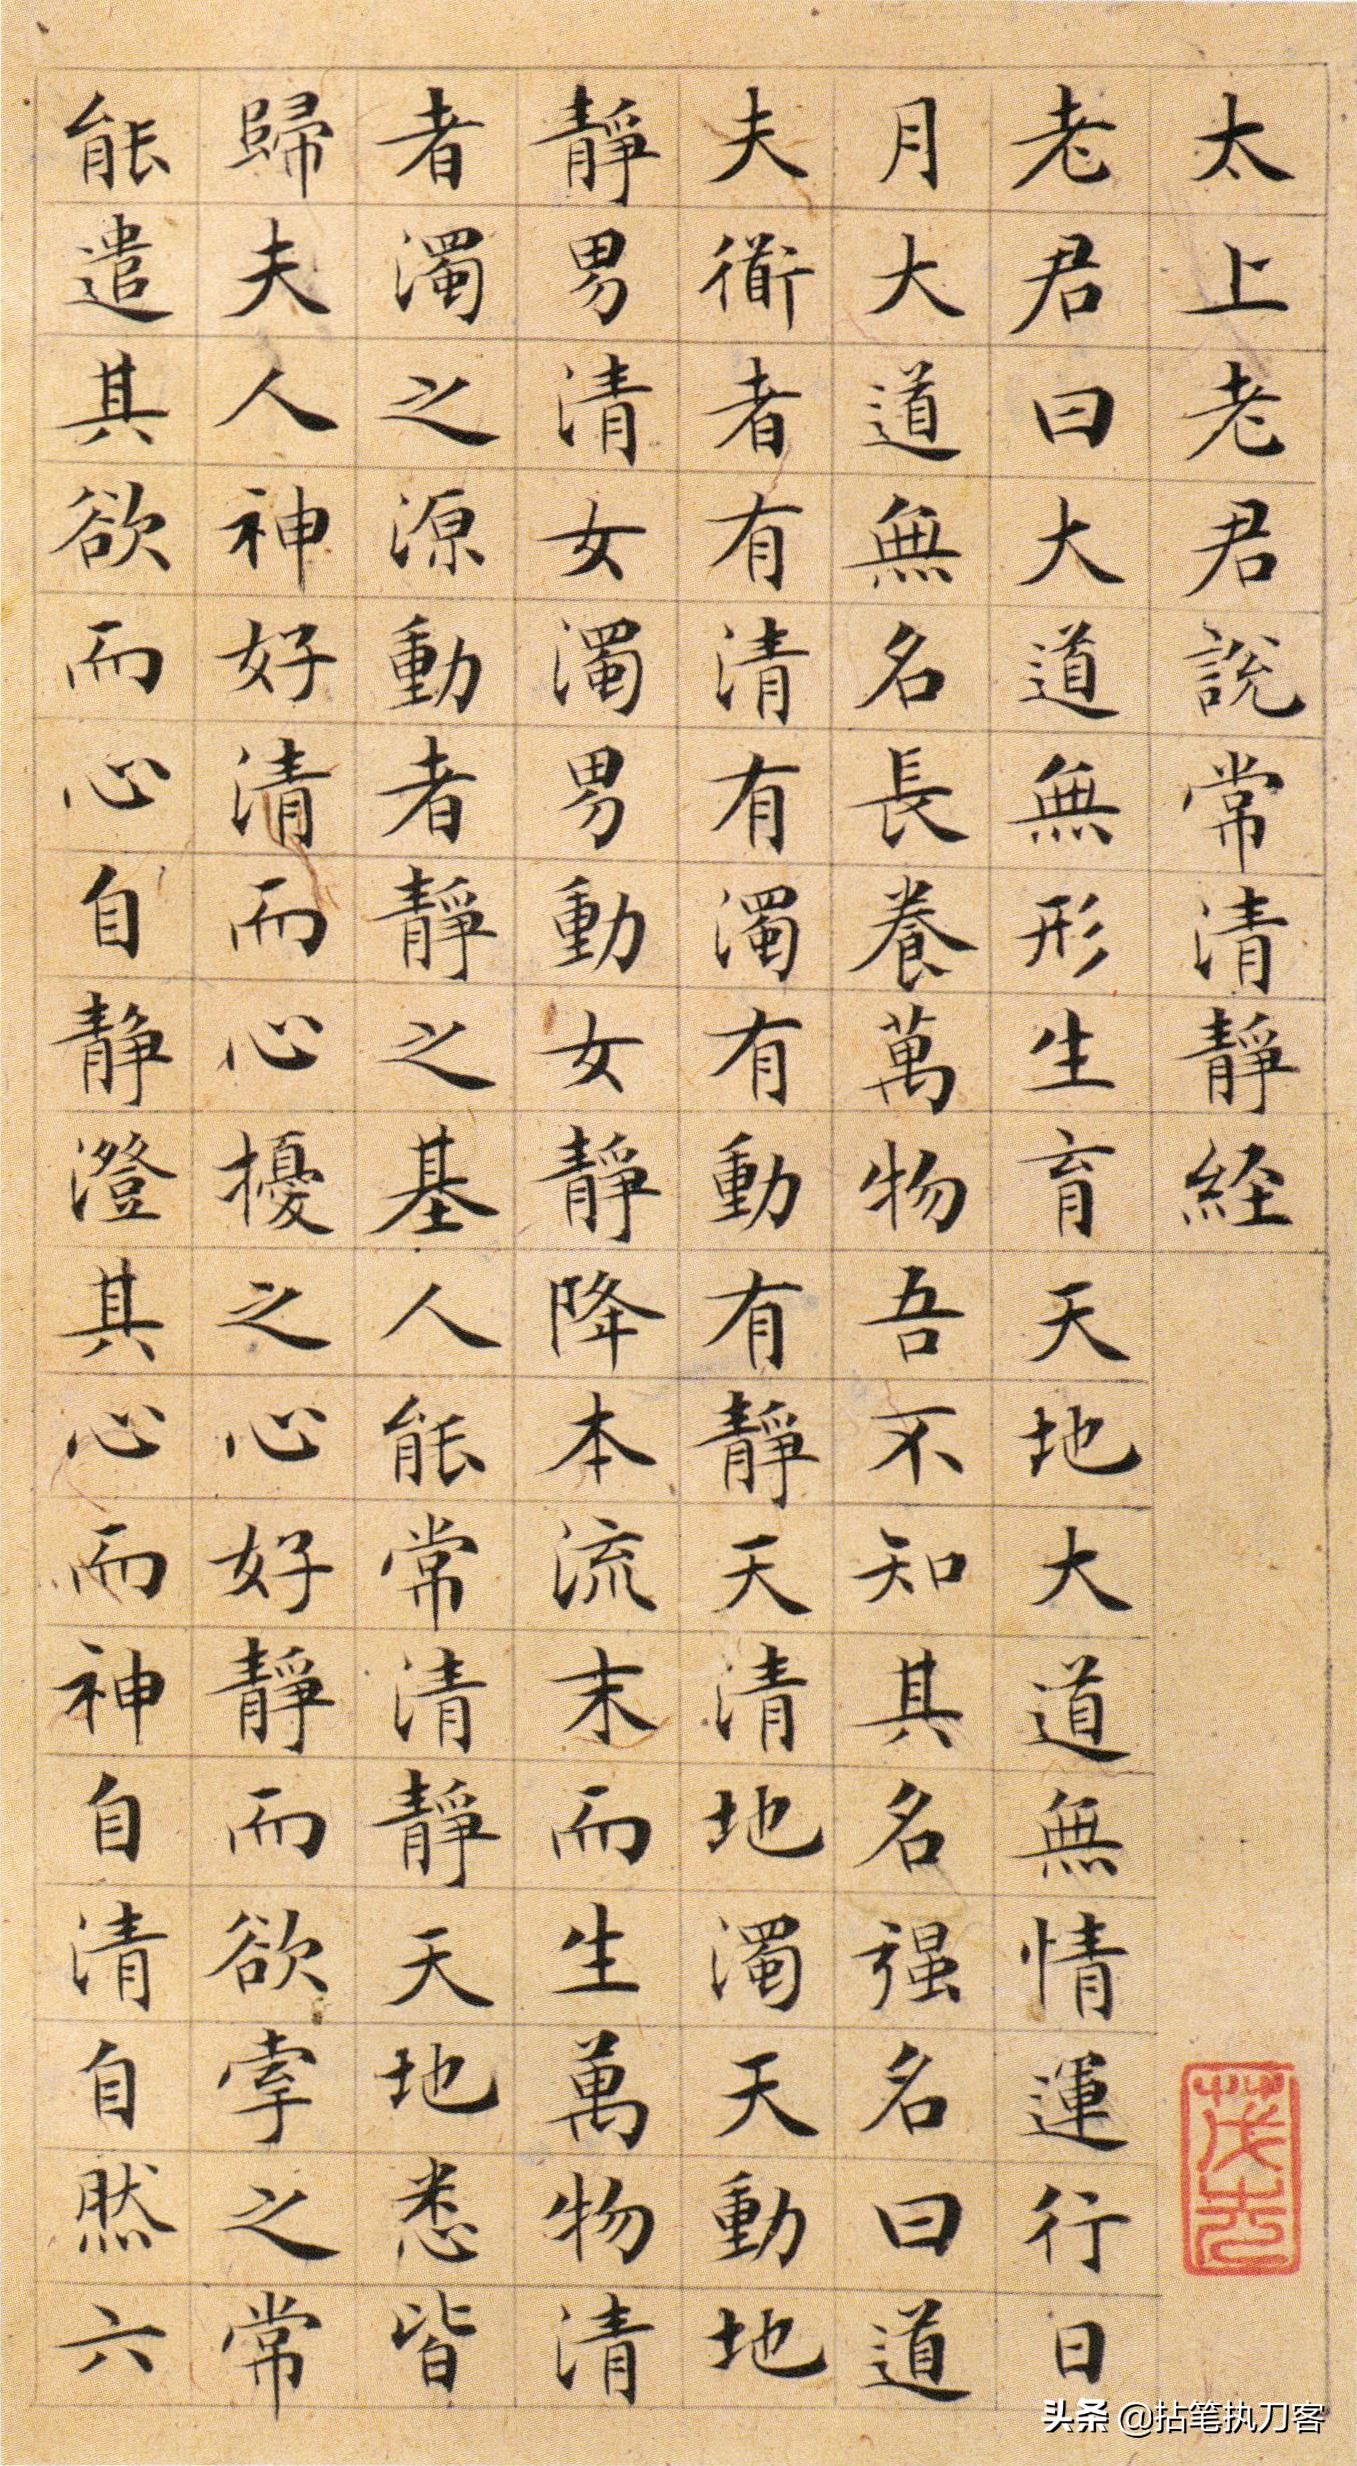 太上老君說常清靜経
老君曰大道無形生育天地大道無情運行日
月大道無名長養萬物吾不知其名强名曰道
夫衜者有清有濁有動有靜天清地濁天動地
靜男清女濁男動女靜降本流末而生萬物清
者濁之源動者靜之基人能常清靜天地悉皆
歸夫人神好清而心擾之心好靜而欲牽之常
能遣其欲而心自静澄其心而神自清自然六
茂先
头条 @拈笔执刀客